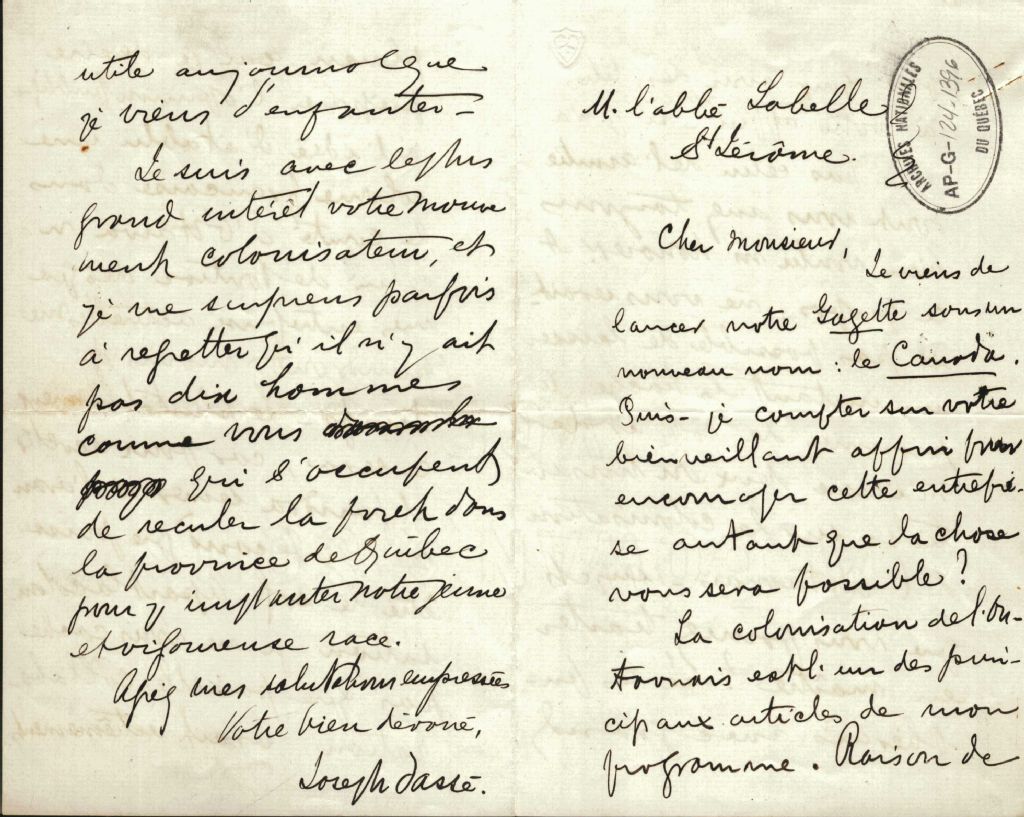 M. l'abbé Labelle
St Jérôme.
ARCHIVES NATIONALES
AP-G-124/1396
DU QUÉBEC
Cher Monsieur,
Je viens de
lancer notre Gazette sous un
nouveau nom : le Canada.
Puis-je compter sur votre
bienveillant appui pour
encourager cette entrepri-
se autant que la chose
vous sera possible ?
La colonisation de l'Ou-
taouais est l'un des prin-
cipaux articles de mon
programme. Raison de
utile au journal que
je viens d'enfanter-
Je suis avec le plus
grand intérêt votre mouve
ment colonisateur, et
je me surprens parfois
à regretter qu'il n'y ait
pas dix hommes
comme vous
qui s'occupent
de reculer la forêt dans
la province de Québec
pour y implanter notre jeune
et vigoureuse race.
Agréez mes salutations empressées
Votre bien dévoué,
Joseph Tassé.